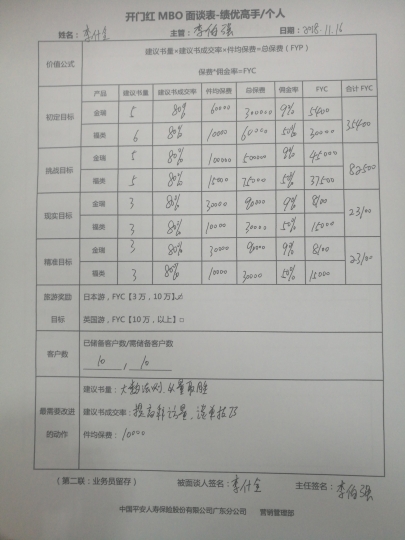 开门红 MBO 面谈表-绩优高手/个人
姓名： 李什全 主管：李伯强 日期：2018.11.16
价值公式 建议书量×建议书成交率×件均保费=总保费（FYP）
保费*佣金率=FYC
产品 建议书量 建议书成交率 件均保费 总保费 佣金率 FYC 合计 FYC
初定目标 金瑞 5 80% 60000 300000 9% 5400 35400
福类 6 80% 10000 60000 50% 30000
挑战目标 金瑞 5 80% 100000 500000 9% 45000 82500
福类 5 80% 15000 75000 50% 37500
现实目标 金瑞 3 80% 30000 90000 9% 8100 23100
福类 3 80% 10000 30000 50% 15000
精准目标 金瑞 3 80% 30000 90000 9% 8100 23100
福类 3 80% 10000 30000 50% 15000
旅游奖励 日本游，FYC【3 万，10 万】☑
目标 英国游，FYC【10 万，以上】□
客户数 已储备客户数/需储备客户数
10 , 10
建议书量：大数法则，以量取胜
最需要改进 建议书成交率：提高拜访量、谈单技巧
的动作 件均保费：10000
（第二联：业务员留存） 被面谈人签名：李什全 主任签名：李伯强
中国平安人寿保险股份有限公司广东分公司 营销管理部